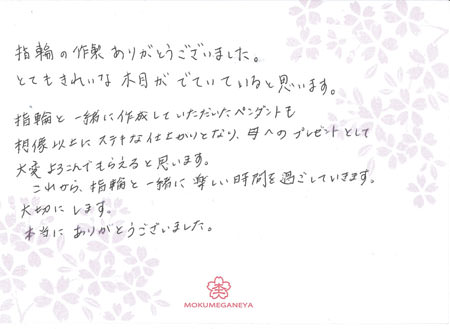 指輪の作製 ありがとうございました。
とてもきれいな 木目が でていていると思います。
指輪と一緒に作成していただいたペンダントも
想像以上に ステキな仕上がりとなり、母へのプレゼントとして
大変 よろこんでもらえると思います。
これから、指輪と一緒に 楽しい時間を過ごしていきます。
大切に します。
本当に ありがとうございました。
MOKUMEGANEYA